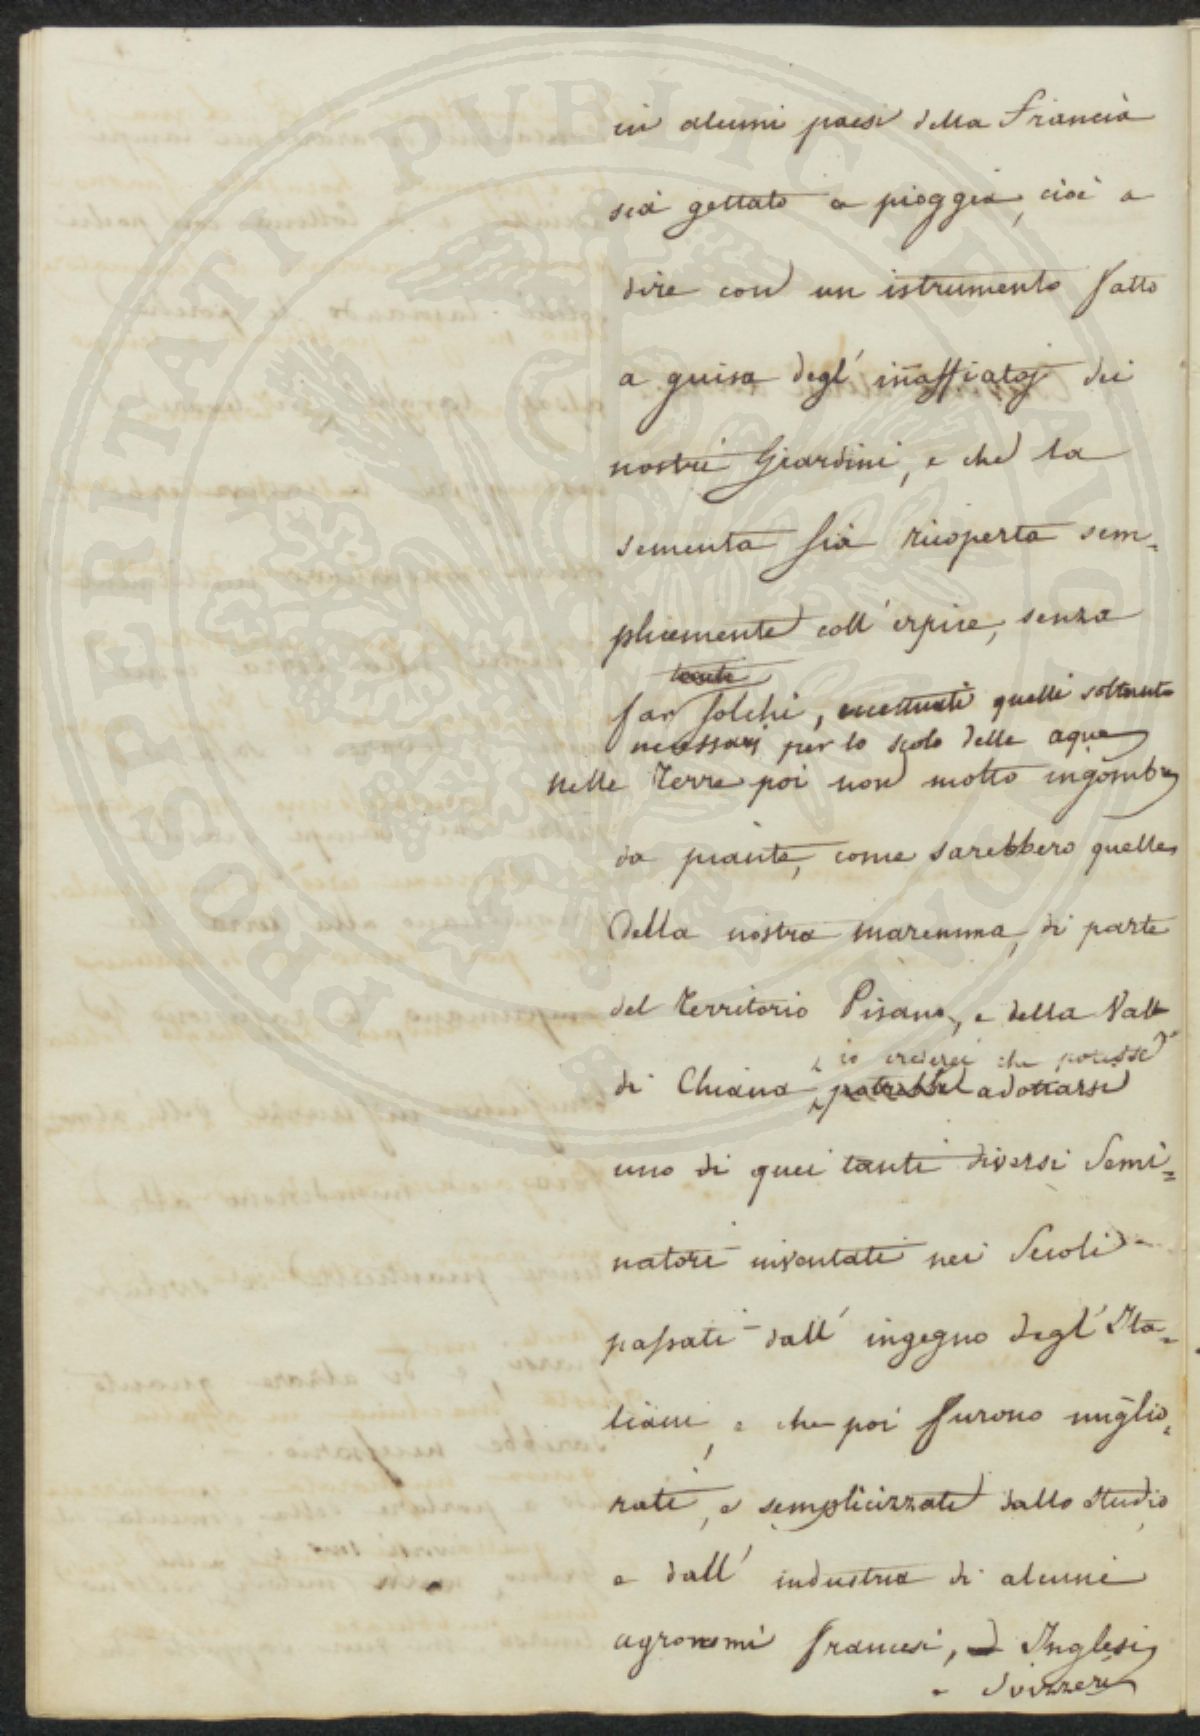 in alcuni paesi della Francia
sia gettato a pioggia, cioè a
dire con un istrumento fatto
a guisa degl' inaffiatoj dei
nostri Giardini, e che la
sementa sia ricoperta sem-
plicemente coll' erpice, senza
tanti
far solchi, eccettuati quelli soltanto
necessarj per lo scolo delle aque
nelle Terre poi non molto ingombre
da piante, come sarebbero quelle
della nostra maremma, di parte
del Territorio Pisano, e della Val
io crederei che potesse
di Chiana potrebbe adottarsi
uno di quei tanti diversi Semi-
natori inventati nei Secoli
passati dall' ingegno degl' Ita-
liani, e che poi furono miglio-
rati, e semplicizzati dallo studio
e dall' industria di alcuni
agronomi francesi, Inglesi
e Svizzeri
PROSPERITATI PUBLICAE AUGENDAE